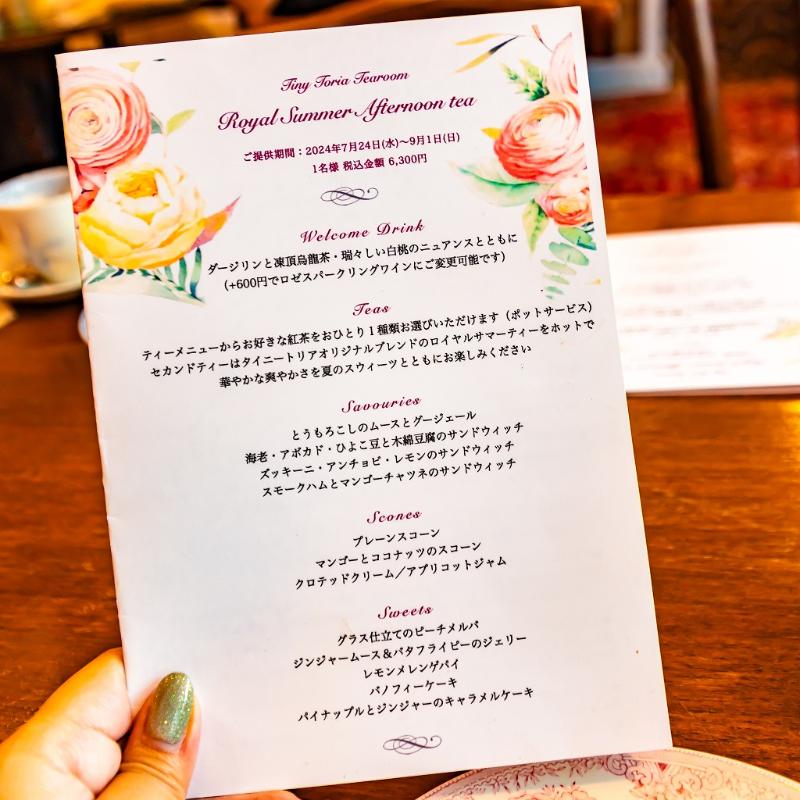 Tiny Toria Tearoom
Royal Summer Afternoon tea
ご提供期間：2024年7月24日(水)〜9月1日(日)
1名様 税込金額 6,300円
Welcome Drink
ダージリンと凍頂烏龍茶・瑞々しい白桃のニュアンスとともに
(+600円でロゼスパークリングワインにご変更可能です)
Teas
ティーメニューからお好きな紅茶をおひとり1種類お選びいただけます（ポットサービス）
セカンドティーはタイニートリアオリジナルブレンドのロイヤルサマーティーをホットで
華やかな爽やかさを夏のスウィーツとともにお楽しみください
Savouries
とうもろこしのムースとグージェール
海老・アボカド・ひよこ豆と木綿豆腐のサンドウィッチ
ズッキーニ・アンチョビ・レモンのサンドウィッチ
スモークハムとマンゴーチャツネのサンドウィッチ
Scones
プレーンスコーン
マンゴーとココナッツのスコーン
クロテッドクリーム／アプリコットジャム
Sweets
グラス仕立てのピーチメルバ
ジンジャームース＆バタフライピーのジェリー
レモンメレンゲパイ
バノフィーケーキ
パイナップルとジンジャーのキャラメルケーキ